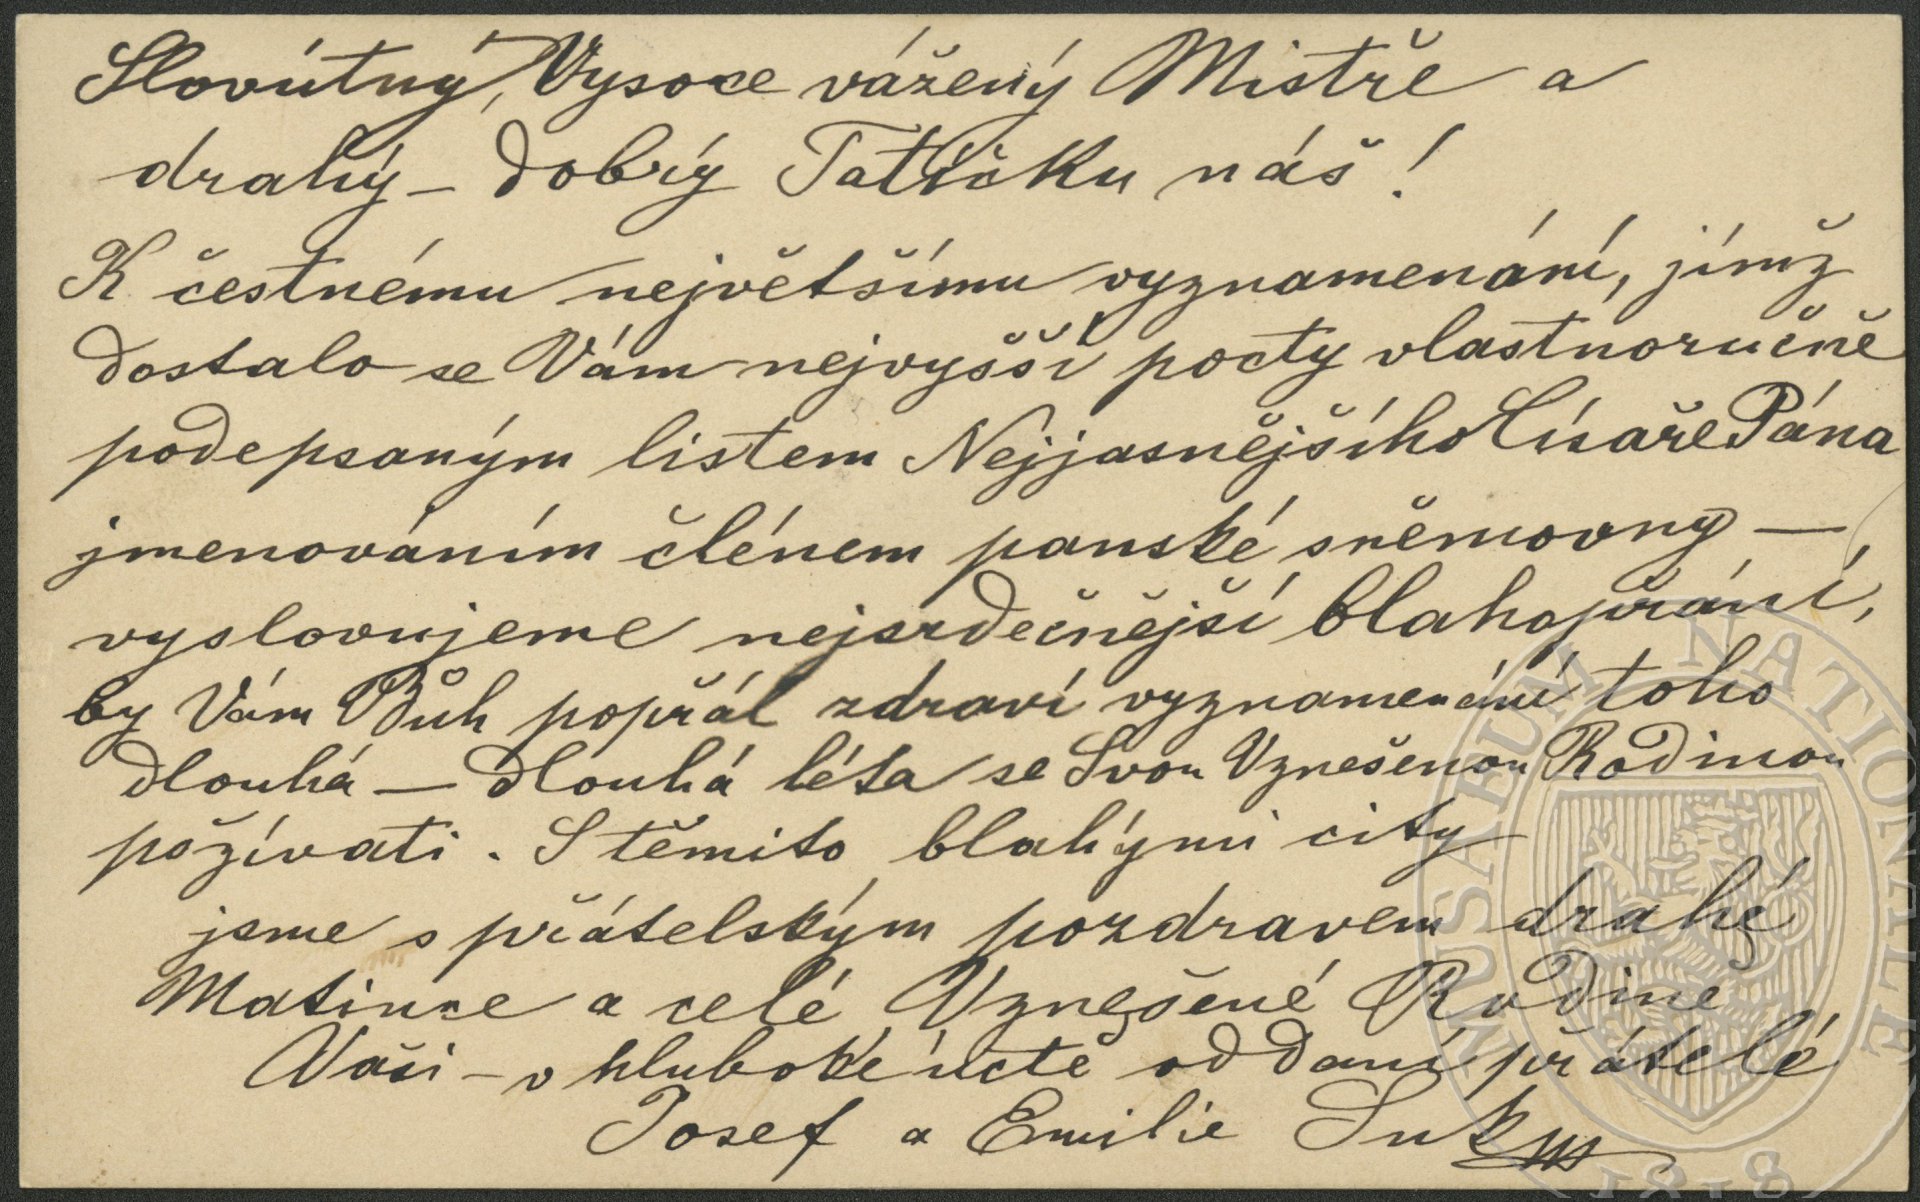 Slovútný, Vysoce vážený Mistře a
drahý – dobrý Tatíčku náš!
K čestnému největšímu vyznamenání, jímž
dostalo se Vám nejvyšší pocty vlastnoručně
podepsaným listem Nejjasnějšího Císaře Pána
jmenováním členem panské sněmovny –
vyslovujeme nejsrdečnější blahopřání,
by Vám Bůh popřál zdraví vyznamenání toho
dlouhá – dlouhá léta se Svou Vznešenou Rodinou
požívati. S těmito blahými city
jsme s přátelským pozdravem drahé
Matince a celé Vznešené Rodině
Vaši – v hluboké úctě oddaní přátelé
Josef a Emilie Suk
MUSAEUM NATIONALE
1818